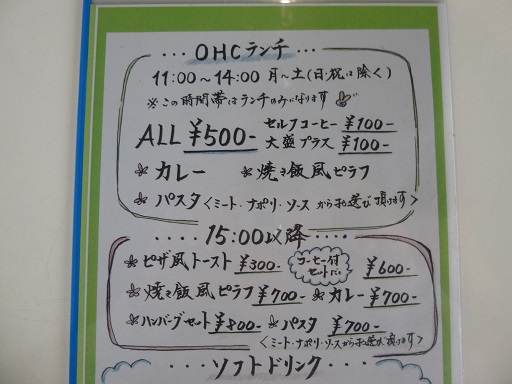 ・・・OHCランチ・・・
11:00～14:00 月～土(日・祝は除く)
※この時間帯はランチのみになります
ALL ¥500-
セルフコーヒー ¥100-
大盛プラス ¥100-
カレー 焼き飯風ピラフ
パスタ<ミート・ナポリ・ソースからお選び頂けます>
・・・・15:00以降・・・・
ピザ風トースト ¥300- コーヒー付セットだと ¥600-
焼き飯風ピラフ ¥700- カレー ¥700-
ハンバーグセット ¥800- パスタ ¥700-
<ミート・ナポリ・ソースからお選び頂けます>
・・・ソフトドリンク・・・